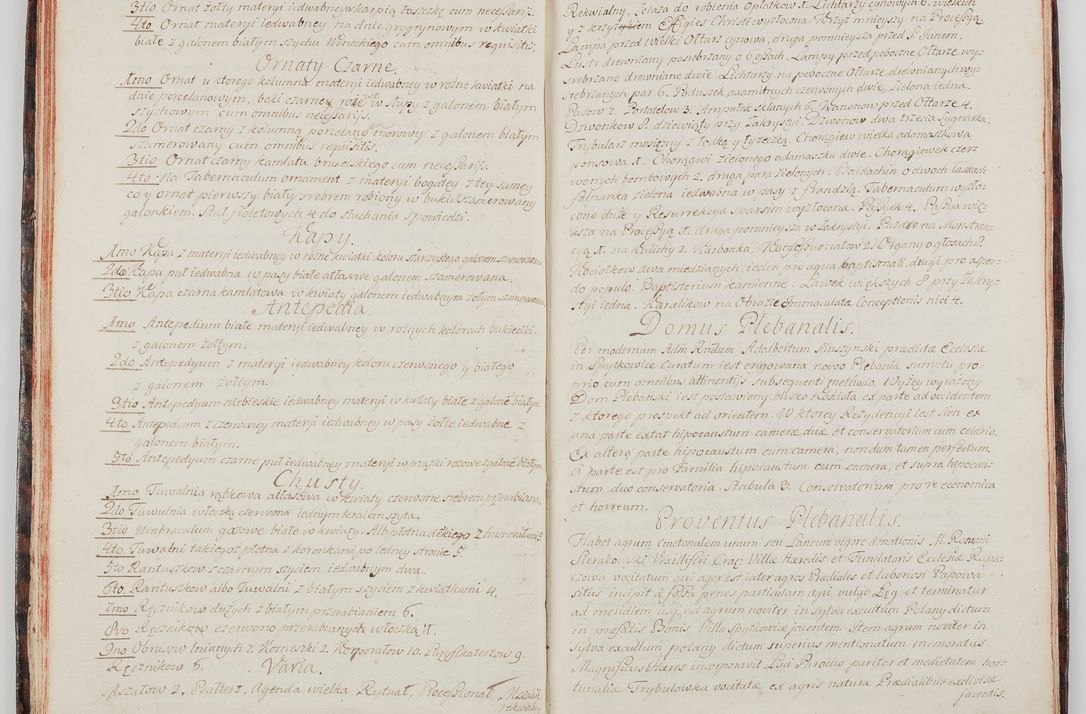 3tio Ornat żołty materyi iedwabney w karpią łoseżkę cum necessarijs.
4to Ornat materyi iedwabney na dnie gryzynowym w kwiatki
białe z galonem białym szychu Weneckiego cum omnibus requisitis.
Ornaty Czarne
1mo Ornat u ktorego kolumna materyi iedwabney w rożne kwiatki na
dnie porcelanowym, boki czarney w słupy z galonem białym
szychowym cum omnibus necessarijs.
2do Ornat czarny z kolumną porcelano morowy z galonem białym
szamerowany cum omnibus requisitis.
3tio Ornat czarny kamlata bruselskiego cum necessarijs.
4to Na Tabernaculum ornament z materyi bogatey z tey samey
co y ornat pierwszy biały srebrem robiony w bukiel szamerowany
galonkiem. Stuł fioletowych 4 do słuchania spowiedzi.
Kapy.
1mo Kapa z materyi iedwabney w rożne kwiatki koloru galonem szamerowana
2do Kapa puł iedwabna w pasy białe atłasowe galonem szamerowana.
3tio Kapa czarna kamlatowa w kwiaty galonem iedwabnym żołtym szamerowana
Antepedia.
1mo Antepedium białe materyi iedwabney w rożnych kolorach bukietki,
z galonem żołtym.
2do Antepedyum z materyi iedwabney koloru czerwonego y białego
z galonem żołtym.
3tio Antepedyum niebieskie iedwabney materyi w kwiaty białe z galonem białym
4to Antepedyum iedwabney materyi w pasy żołte iedwabne z
galonem białym.
5to Antepedyum czarne puł iedwabney materyi w prążki rożowe z galonem białym
Chusty.
1mo Tuwalnia rąbkowa atłasowa w kwiaty czerwone srebrem przerabiana.
2do Tuwulnia włoczką czerwona iednym kraiem szyta.
3tio Umbraculum gazowe białe w kwiaty. Alb płotna z humerałami
4to Tuwalni takiegoz płotna z koronkami po iedney stronie 5.
5to Rantuszkow z czarnym szyciem iedwabnym dwa.
6to Rantuszkow albo Tuwalni z białym szyciem z kwiatkami 4.
7mo Ręcznikow dużych z białym przerabianiem 6.
8vo Ręcznikow czerwono przerabianych włoczką
9no Obrusow lnianych 7. Komeszki 2. Korporałow 10. Puryfikaterzow 9.
Ręcznikow 6.
Varia.
Mszałow 2, Psałterz, Agenda wielka, Rytuał, Processyonał, Mszalik
rekwialny
Rekwialny, Żelaza do robienia Opłatkow st. Lichtarzy cynowych 6. wielkich
y z krzyżykiem Effigies Christi wyzłocona. Krzyż mnieyszy na Processyą
Lampa przed Wielki Ołtarz cynowa, druga pomnieysza przed P. Janem.
Lustr drewniany posrebrzany o 6 Lampy przed poboczne Ołtarze wy-
srebrzane drewniane dwie. Lichtarzy na poboczne Ołtarze drewnianych wy-
srebrzanych par 6. Poduszek adamitnych czerwonych dwie, zielona iedna.
Pasow 7. Portatelow 3. Ampułek sklanych 6. Kanonow przed Ołtarze 4.
Dzwonkow 8. dziewiąty przy Zakrystyi. Dzwonow dwa trzecia Sygnarka.
Trybularz mosiężny z łodką y łyzeczką. Chorągiew wielka adamaszkowa
ponsowa st. Chorągwi zielonego adamaszku dwie. Chorągiewek czer-
wonych bombowych 2. druga para zielonych. Baldachin o dwoch laskach
zielona iedwabna w pasy z frandzlą. Tabernaculum wyzło-
cone duże y Resurrekcya sparsim wyzłocona. Passyiek 4. Passya wię-
ksza na Processyą st. druga pomnieysza w Zakrystyi. Puzdro na Monstran-
cyą st. na Kielichy 2. Karbonka. Konfessyonałow 2. Organy o głosach 8.
Kociołkow dwa miedzianych, ieden pro aqua baptismali, drugi pro asper-
do populo. Baptisterium kamienne. Ławek większych 8 przy Zakry-
styi iedna. Karalikow na Obrazie Immaculatæ Conceptionis nici 4.
Domus Plebanalis.
Per modernum Adm. Rndum Adalbertum Muszynski prædictæ Ecclesiæ
in Spytkowice Curatum iest erygowana nowo Plebania sumptu pro-
prio cum omnibus attinentijs subsequenti methodo. Wyżey wyrażony
Dom Plebanski iest postawiony blisko Koscioła ex parte ad occidentem
z ktorego prospekt ad orientem. W ktorey Rezydencyi iest sien ex
una parte extat hipocaustum cameræ duæ et conservatorium cum celario.
Ex altera parte hipocaustum cum camera, nondum tamen perfectum,
à parte est pro Familia hipocaustum cum camera, et supra hipocau-
stum duo conservatoria. Stabula 3. Conservatorium pro re œconomica
et horreum.
Proventus Plebanalis.
Habet agrum cmetonalem unum seu Laneum vigore donationis M. Romani
Sierakowski Vexilliferi Crac: Villæ Hæredis et Fundatoris Ecclesiæ Rapa-
czowa vocitatum qui ager est inter agros Prædiales et laboriosi Papowa
situs incipit à fossa penes particulam agri vulgo Łęg et terminatur
ad meridiem ad agrum noviter in Sylva excultum Polany dictum
in præfatis Bonis Villæ Spytkowice jacentem. Item agrum noviter in
sylva excultum polany dictum superius mentionatum memoratus
Magnificus Hæres incorporavit Loci Parocho pariter et medietatem hor-
tulaniæ Trybulowska vocitatæ ex agris natura Prædialibus
jacentis.